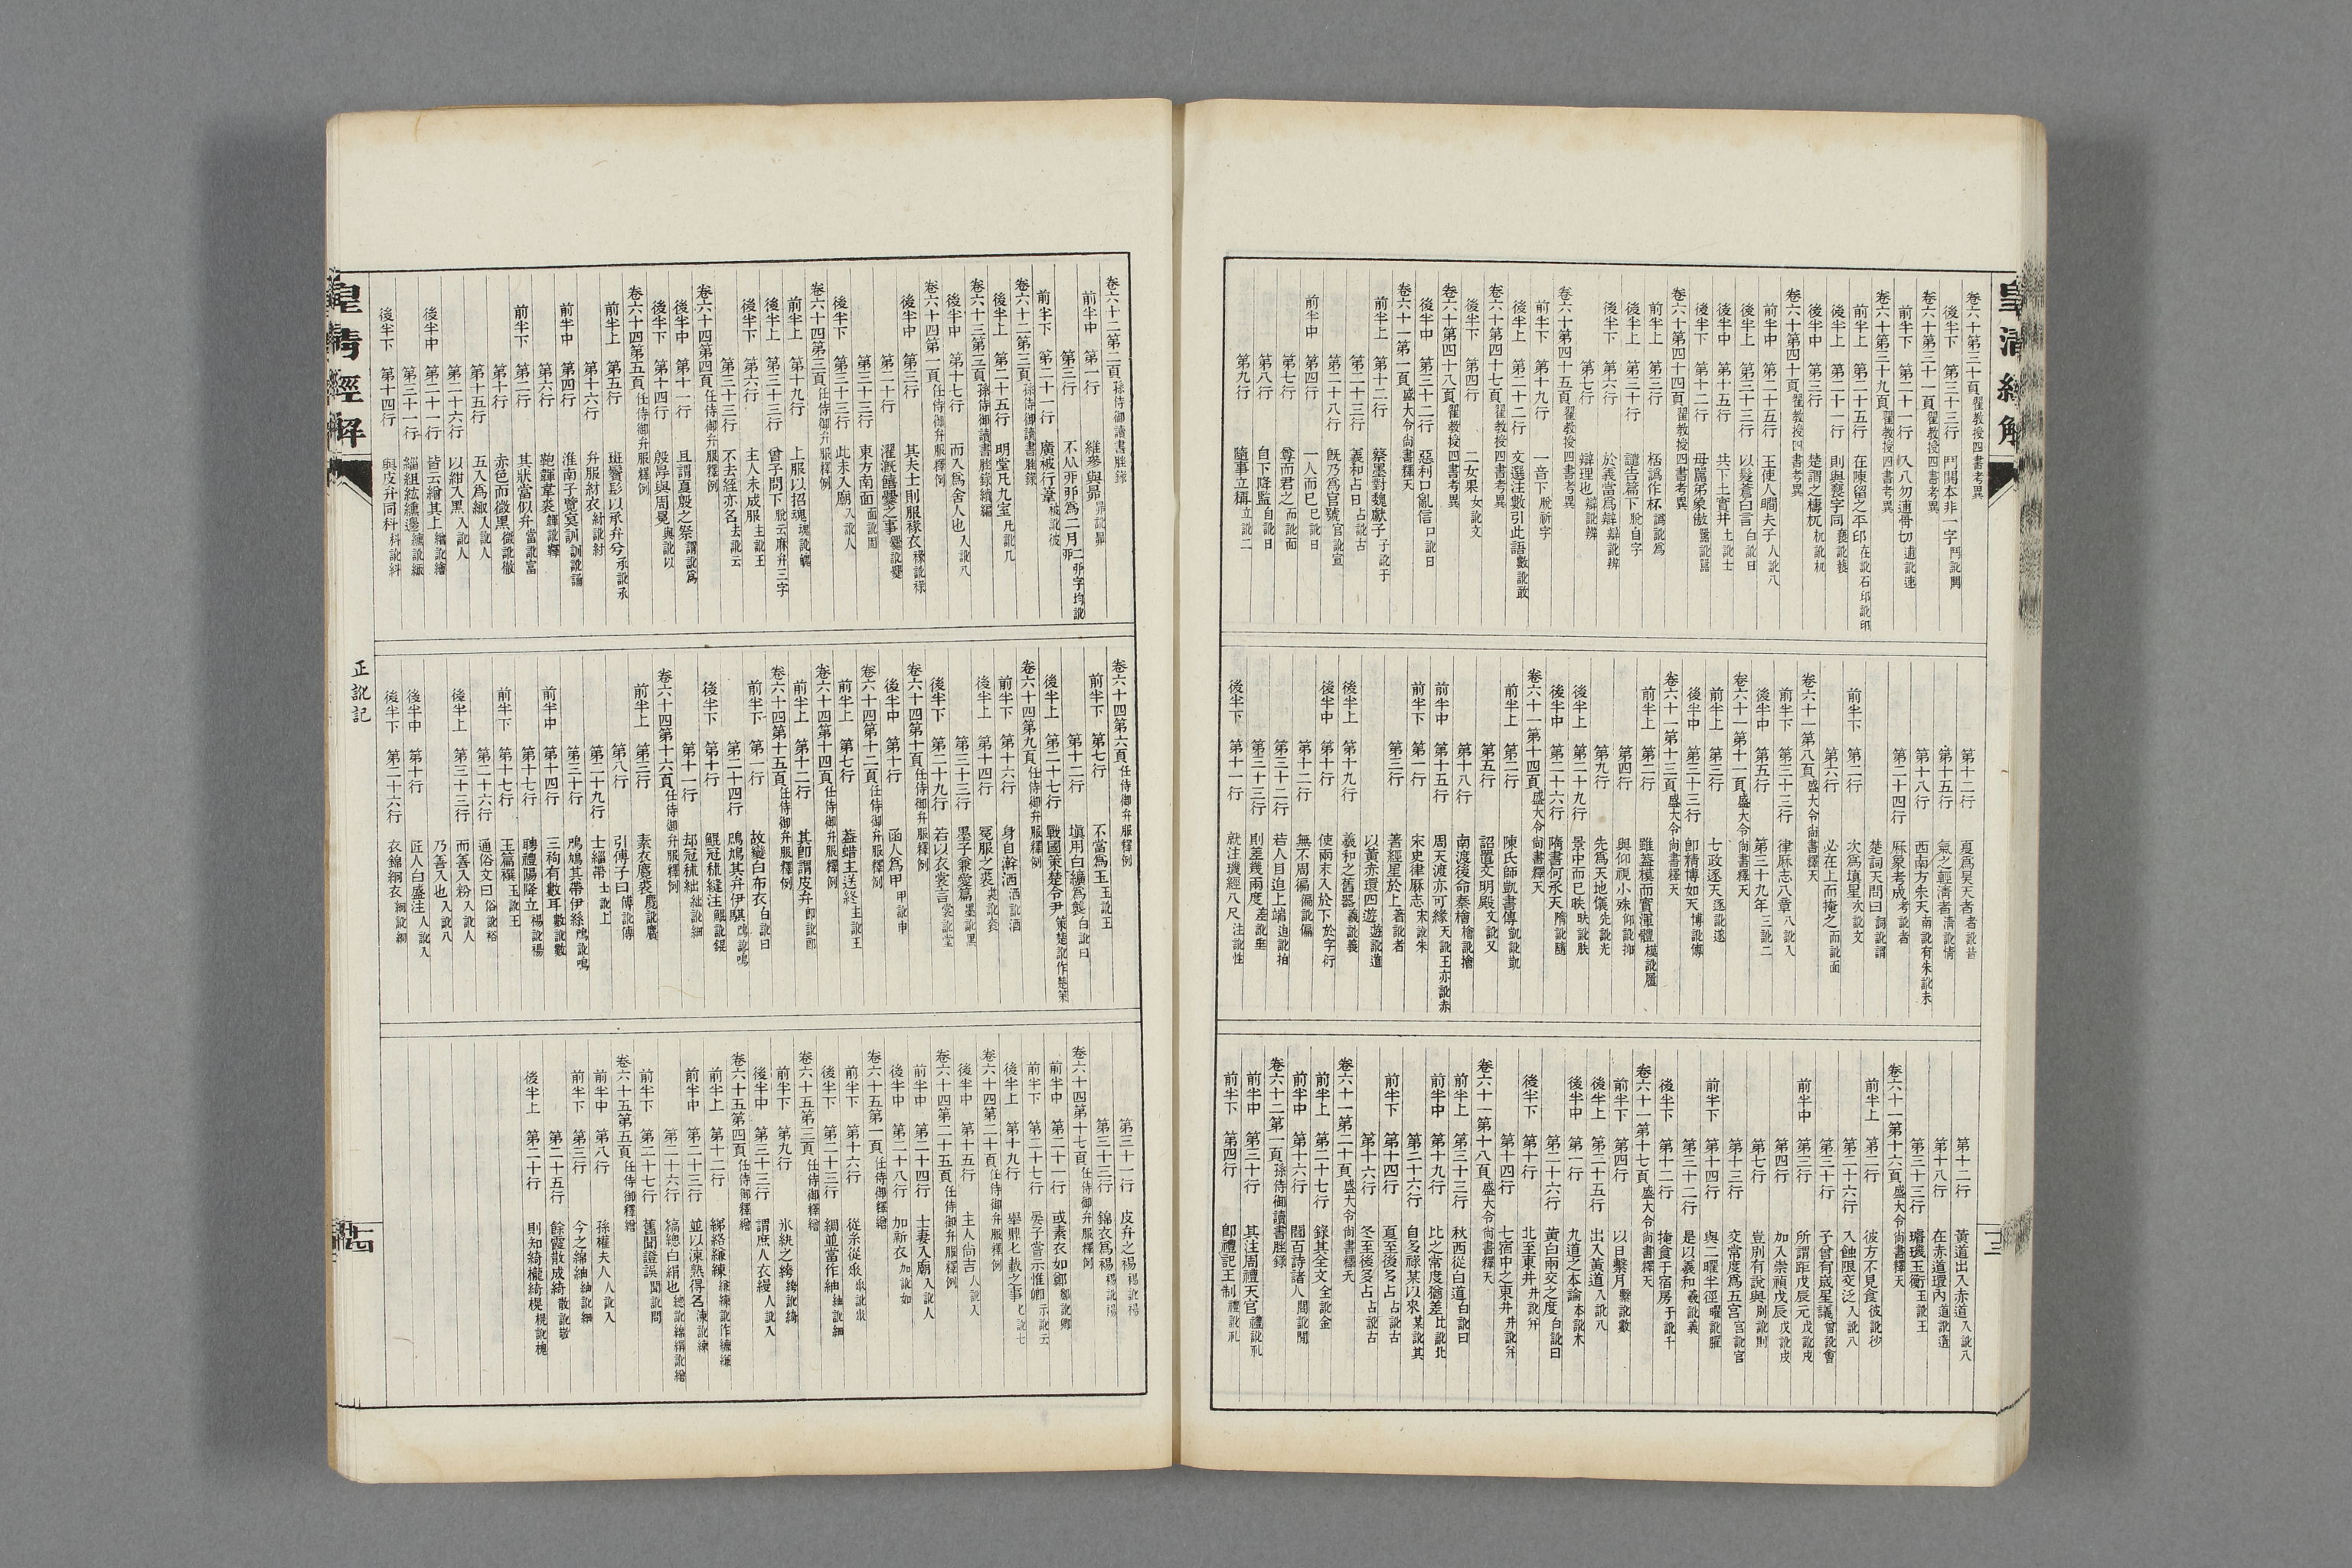 皇清經解
卷六十第三十頁翟教授四書考異
後半下 第三十三行 鬥閧本非一字鬥訛閧
卷六十第三十一頁翟教授四書考異
前半下 第二十一行 入八勿連骨切連訛速
卷六十第三十九頁翟教授四書考異
前半上 第二十五行 在陳留之平印在訛石印訛卬
後半上 第二十一行 則與褻字同
後半中 第三行 楚謂之檮杌
卷六十第四十頁翟教授四書考異
前半中 第二十五行 王使人瞷夫子人訛八
後半上 第三十三行 以髮蒼曰言白訛日
後半中 第十五行 共下土實井土訛士
後半下 第十二行 母嚚弟象傲嚚訛囂
卷六十第四十四頁翟教授四書考異
前半上 第三行 桮譌作杯譌訛爲
後半上 第三十行 譴告篇下脫自字
後半下 第六行 於義當爲辯辯訛辨
第七行 辯理也辯訛辨
卷六十第四十五頁翟教授四書考異
前半下 第十九行 一音下脫祈字
後半上 第二十二行 文選注數引此語數訛敢
卷六十第四十七頁翟教授四書考異
後半下 第四行 二女果女訛文
卷六十第四十八頁翟教授四書考異
後半中 第三十二行 惡利口亂信口訛日
卷六十一第一頁盛大令尚書釋天
前半上 第十二行 蔡墨對魏獻子子訛于
第二十三行 羲和占日占訛古
第二十八行 旣乃爲官號官訛宣
前半中 第四行 一人而已已訛日
第七行 尊而君之而訛面
第八行 自下降監自訛日
第九行 隨事立稱立訛二
第十二行 夏爲昊天者者訛昔
第十五行 氣之輕淸者淸訛情
第十八行 西南方朱天南訛有朱訛未
第二十四行 厤象考成考訛者
楚詞天問曰詞訛謂
前半下 第二行 次爲塡星次訛文
第六行 必在上而掩之而訛面
卷六十一第八頁盛大令尚書釋天
前半下 第三十三行 律厤志八章八訛入
後半中 第五行 第三十九年三訛二
卷六十一第十一頁盛大令尚書釋天
前半上 第三行 七政逐天逐訛遂
後半中 第三十三行 卽精博如天博訛傅
卷六十一第十三頁盛大令尚書釋天
前半上 第二行 雖葢模而實渾體模訛
第四行 與仰視小殊仰訛抑
第九行 先爲天地儀先訛光
後半上 第二十九行 景中而已昳昳訛
後半中 第二十六行 隋書何承天隋訛隨
卷六十一第十四頁盛大令尚書釋天
前半上 第二行 陳氏師凱書傳凱訛
第五行 詔置文明殿文訛又
第十八行 南渡後命秦檜檜訛
前半中 第十五行 周天渡亦可緣天訛王亦訛赤
前半下 第一行 宋史律厤志宋訛朱
第三行 著經星於上著訛者
以黃赤環四遊遊訛道
後半上 第十九行 羲和之舊器羲訛義
後半中 第十行 使兩末入於下於字衍
第十二行 無不周徧徧訛偏
第三十二行 若人目迫上端迫訛拍
第三十三行 則差幾兩度差訛
後半下 第十一行 就注璣經八尺注訛性
第十二行 黃道出入赤道入訛八
第十八行 在赤道環內道訛
第三十三行 璿璣玉衡玉訛王
卷六十一第十六頁盛大令尚書釋天
前半上 第二行 彼方不見食彼訛
第二十六行 入蝕限交泛入訛八
第三十行 予曾有歲星議曾訛會
前半中 第三行 所謂距戊辰元戊訛戌
第四行 加入崇禎戊辰戊訛戌
第七行 豈別有說與別訛則
第十三行 交常度爲五宮宮訛官
前半下 第十四行 與二曜半徑曜訛
第三十二行 是以羲和羲訛義
後半下 第十二行 掩食于宿房于訛千
卷六十一第十七頁盛大令尚書釋天
前半下 第四行 以日繫月繫訛數
後半上 第三十五行 出入黃道入訛八
後半中 第一行 九道之本論本訛木
第二十六行 黃白兩交之度白訛日
後半下 第十行 北至東井井訛
第十四行 七宿中之東井井訛
卷六十一第十八頁盛大令尚書釋天
前半上 第三十三行 秋西從白道白訛曰
前半中 第十九行 比之常度猶差比訛北
第二十六行 自多祿某以來某訛其
前半下 第十四行 夏至後多占占訛古
第十六行 冬至後多占占訛古
卷六十一第二十頁盛大令尚書釋天
前半上 第二十七行 錄其全文全訛金
前半中 第十六行 閻百詩諸人閻訛
卷六十二第一頁孫侍御讀書脞錄
前半中 第三十行 其注周禮天官禮訛礼
前半下 第四行 卽禮記王制禮訛礼
十三
卷六十二第二頁孫侍御讀書脞錄
前半中 第一行 維參與昴昴訛昻
第三行 不从丣丣爲二月二丣字均訛
前半下 第二十一行 廣被行葦被訛彼
卷六十二第三頁孫侍御讀書脞錄
後半上 第二十五行 明堂凡九室凡訛几
卷六十三第三頁孫侍御讀書脞錄續編
後半中 第十七行 而入爲舍人也入訛八
卷六十四第一頁任侍御弁服釋例
後半中 第三行 其夫士則服褖衣褖訛祿
第二十行 濯漑饎爨之事
第三十三行 東方南面面訛固
後半下 第三十三行 此未入廟入訛人
卷六十四第三頁任侍御弁服釋例
前半上 第十九行 上服以招魂魂訛
後半上 第三十三行 曾子問下脫云麻弁三字
後半下 第六行 主人未成服主訛王
第三十三行 不去絰亦名去訛云
卷六十四第四頁任侍御弁服釋例
後半中 第十一行 且謂夏殷之祭謂訛爲
後半下 第十四行 殷冔與周冕與訛以
卷六十四第五頁任侍御弁服釋例
前半上 第五行 斑鬢髟以承弁兮承訛
第十六行 弁服紂衣紂訛紂
前半中 第四行 淮南子覽冥訓訓訛
第六行 鞄韗韋裘韗訛
前半下 第二行 其狀當似弁當訛富
第十行 赤色而微黑微訛徹
第十五行 五入爲緅入訛人
第二十六行 以紺入黑入訛人
後半中 第二十一行 皆云繪其上繪訛繪
第三十一行 緇組紘纁邊纁訛
後半下 第十四行 與皮弁同科科訛料
卷六十四第六頁任侍御弁服釋例
前半下 第七行 不當爲玉玉訛王
第十二行 塡用白纊爲襲白訛日
後半上 第二十七行 戰國策楚令尹策楚訛作楚策
卷六十四第九頁任侍御弁服釋例
前半下 第十六行 身自澣洒洒訛酒
後半上 第十四行 冕服之裘裘訛
第三十三行 墨子兼愛篇墨訛黑
後半下 第二十九行 若以衣裳言裳訛堂
卷六十四第十頁任侍御弁服釋例
後半中 第十行 函人爲甲甲訛申
卷六十四第十二頁任侍御弁服釋例
前半上 第七行 葢蜡主送終主訛王
卷六十四第十四頁任侍御弁服釋例
前半上 第十二行 其卽謂皮弁卽訛郎
卷六十四第十五頁任侍御弁服釋例
前半下 第一行 故變白布衣白訛曰
第二十四行 鳲鳩其弁伊騏鳲訛鳴
後半下 第十行 鯤冠秫縫注鯤訛錕
第十一行 却冠秫絀絀訛細
卷六十四第十六頁任侍御弁服釋例
前半上 第三行 素衣麑裘麑訛
第八行 引傳子曰傅訛傳
第二十九行 士緇帶士訛上
第三十行 鳲鳩其帶伊絲鳲訛鳴
前半中 第十四行 三祠有數耳數訛數
第十七行 聘禮賜降立
前半下 第十七行 玉篇襈玉訛王
第二十六行 通俗文曰俗訛裕
後半上 第三十三行 而善入粉入訛人
乃善入也入訛八
後半中 第十行 匠人白盛注人訛入
後半下 第二十六行 衣錦絅衣絅訛綱
第三十一行 皮弁之裼裼訛
第三十三行 錦衣爲裼裼訛
卷六十四第十七頁任侍御弁服釋例
前半中 第二十一行 或素衣如鄭鄭訛
前半下 第二十七行 晏子嘗示惟卿示訛云
後半上 第十九行 舉鼎匕載之事匕訛七
卷六十四第二十頁任侍御弁服釋例
後半中 第十五行 主人尙吉人訛入
卷六十四第二十五頁任侍御弁服釋例
前半中 第二十四行 士妻入廟入訛人
後半中 第二十八行 加新衣加訛如
卷六十五第一頁任侍御釋繒
前半下 第十六行 從糸從
後半下 第二十三行 綢並當作紬紬訛細
卷六十五第三頁任侍御釋繒
前半下 第九行 氷紈之綺綺訛
後半中 第三十三行 謂庶人衣縵人訛入
卷六十五第四頁任侍御釋繒
前半上 第十二行 綈絡縑練縑練訛作練縑
前半中 第二十三行 並以湅熟得名湅訛練
第二十六行 縞總白絹也總訛緫絹訛繪
前半下 第二十七行 舊聞證誤聞訛問
卷六十五第五頁任侍御釋繒
前半中 第八行 孫權夫人人訛入
前半下 第三行 今之綿紬紬訛細
第二十五行 餘霞散成綺散訛敬
後半上 第二十行 則知綺櫳綺榥榥訛
皇清經解
正訛記
十四